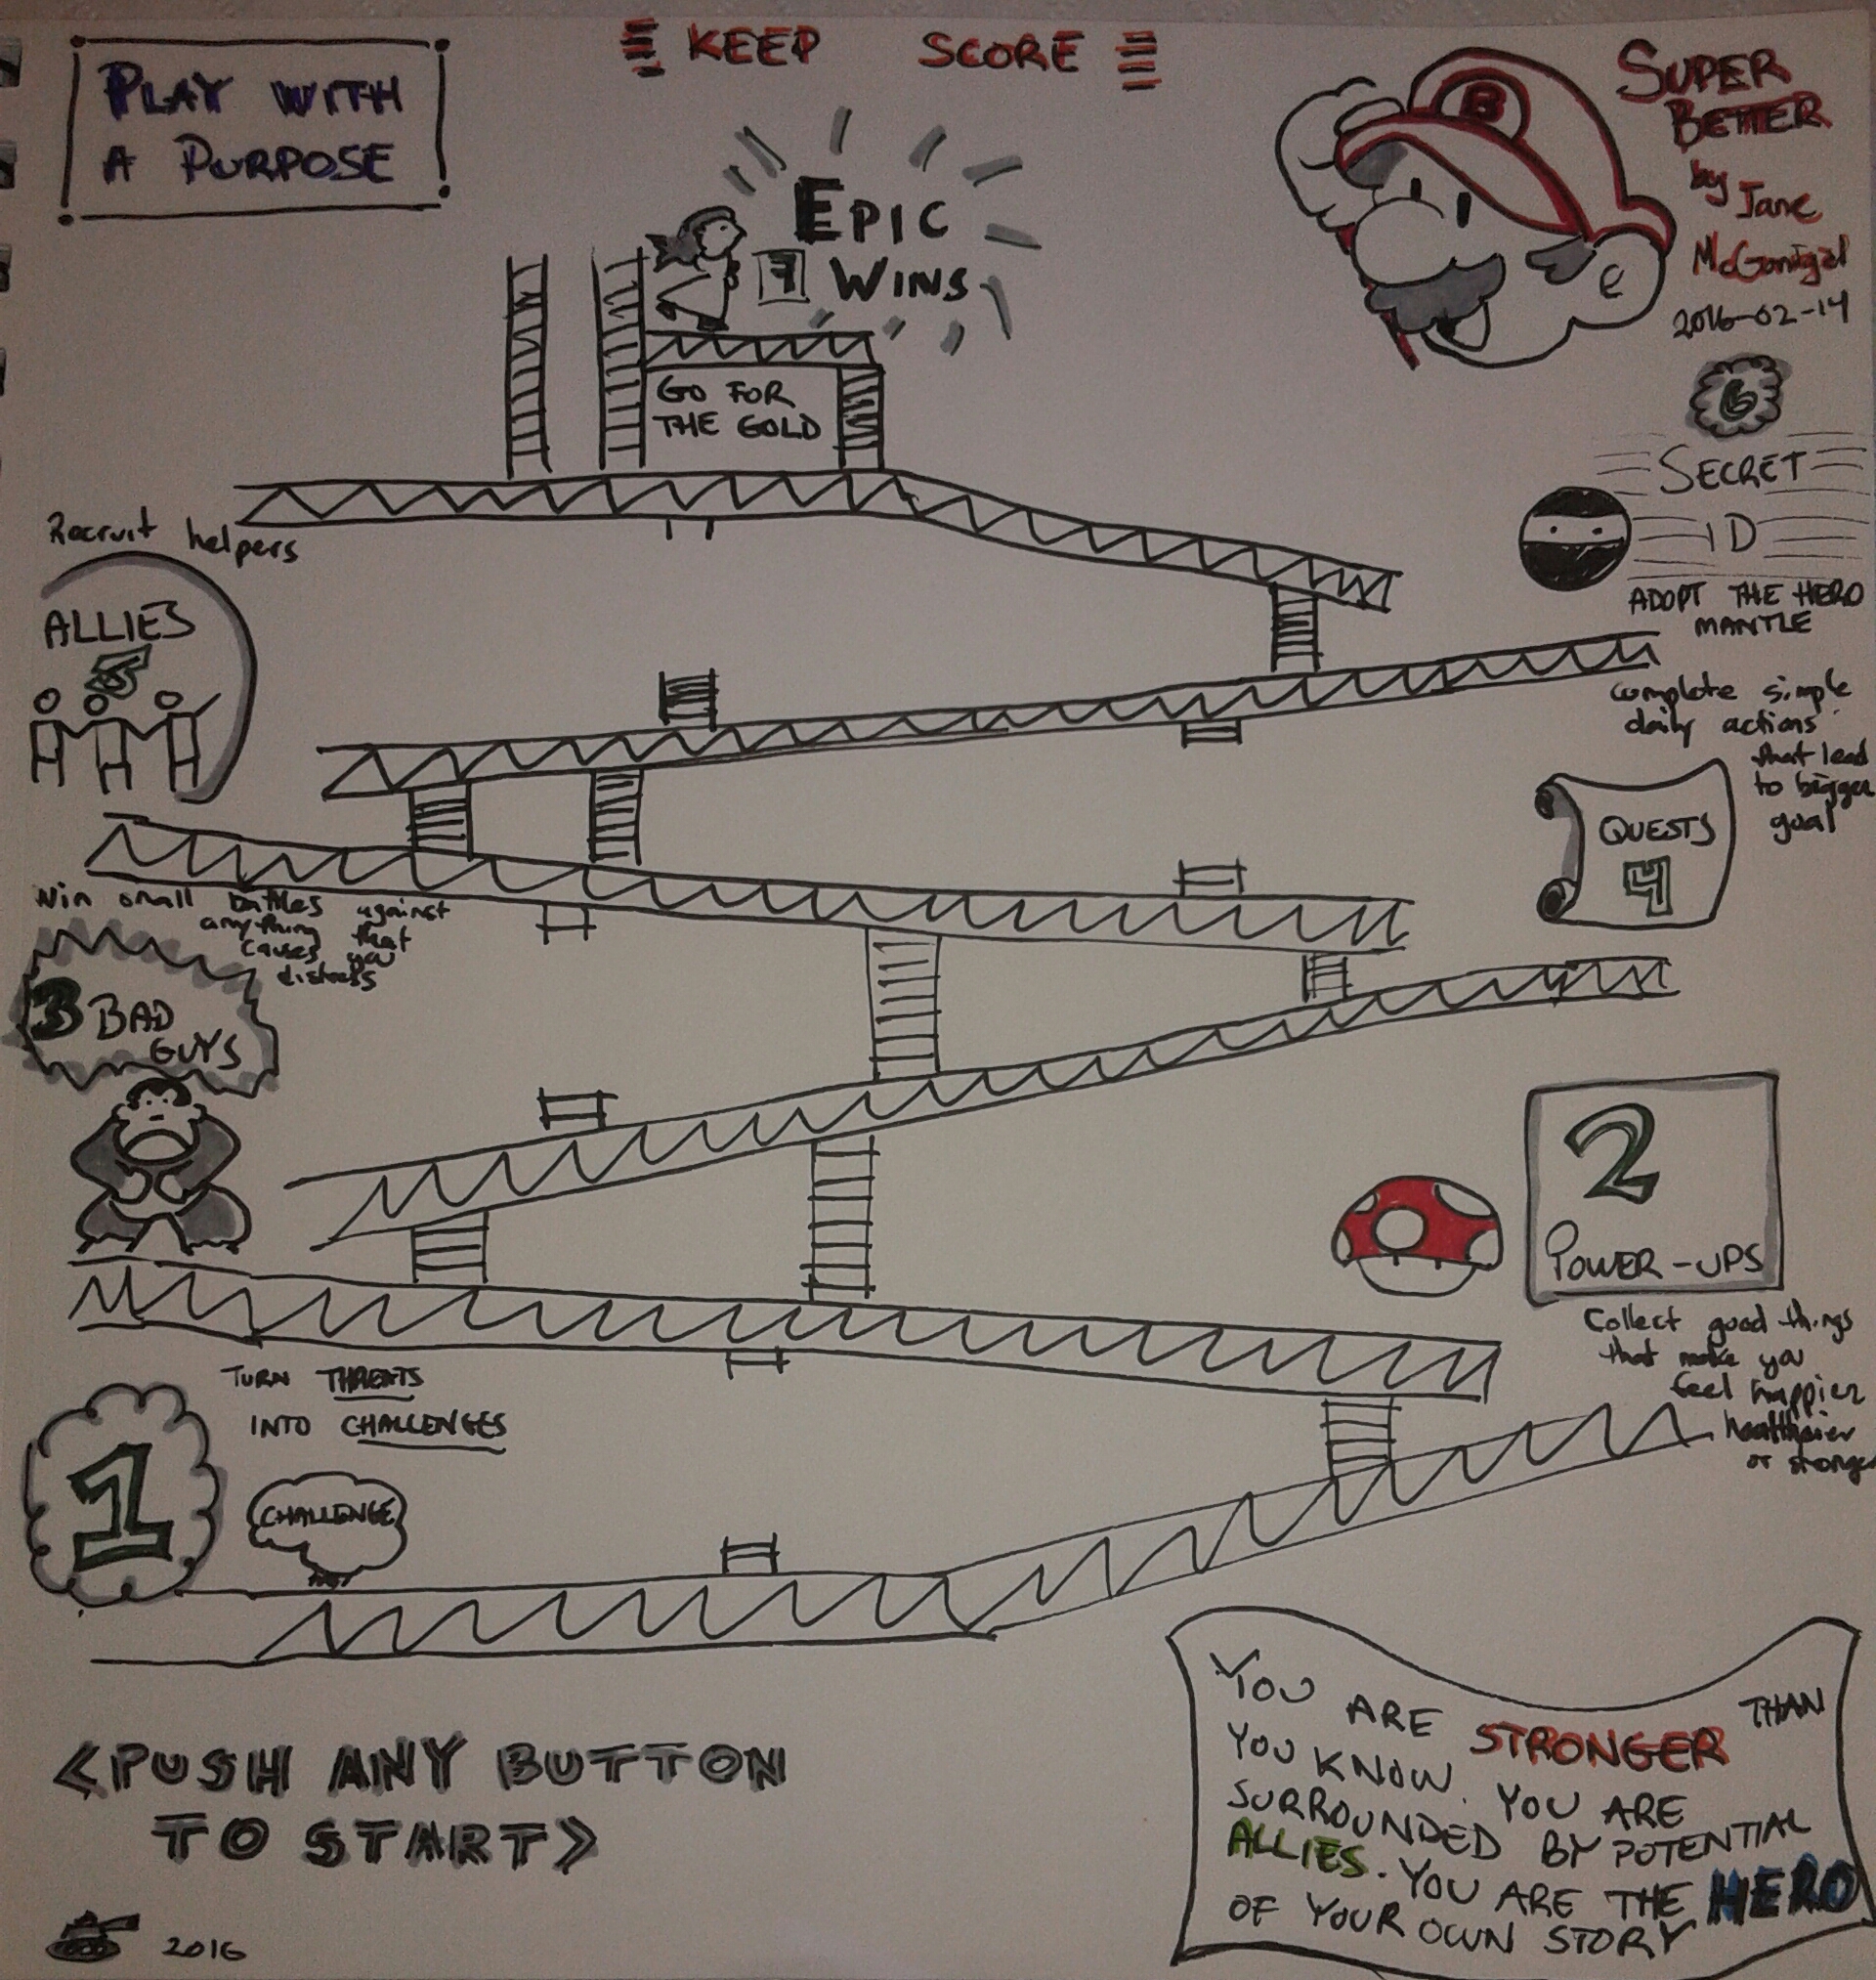 PLAY WITH
A PURPOSE
KEEP SCORE
SUPER
BETTER
by
Jane
McGonigal
2016-02-14
B
EPIC
7 WINS
GO FOR
THE GOLD
6
SECRET
ID
ADOPT THE HERO
MANTLE
Recruit helpers
ALLIES
5
complete simple
daily actions
that lead
to bigger
goal
QUESTS
4
Win small battles against
anything that
causes you
distress
3 BAD
GUYS
2
POWER-UPS
Collect good things
that make you
feel happier
healthier
or stronger
TURN THREATS
INTO CHALLENGES
1
CHALLENGE
<PUSH ANY BUTTON
TO START>
YOU ARE STRONGER THAN
YOU KNOW. YOU ARE
SURROUNDED BY POTENTIAL
ALLIES. YOU ARE THE HERO
OF YOUR OWN STORY
2016